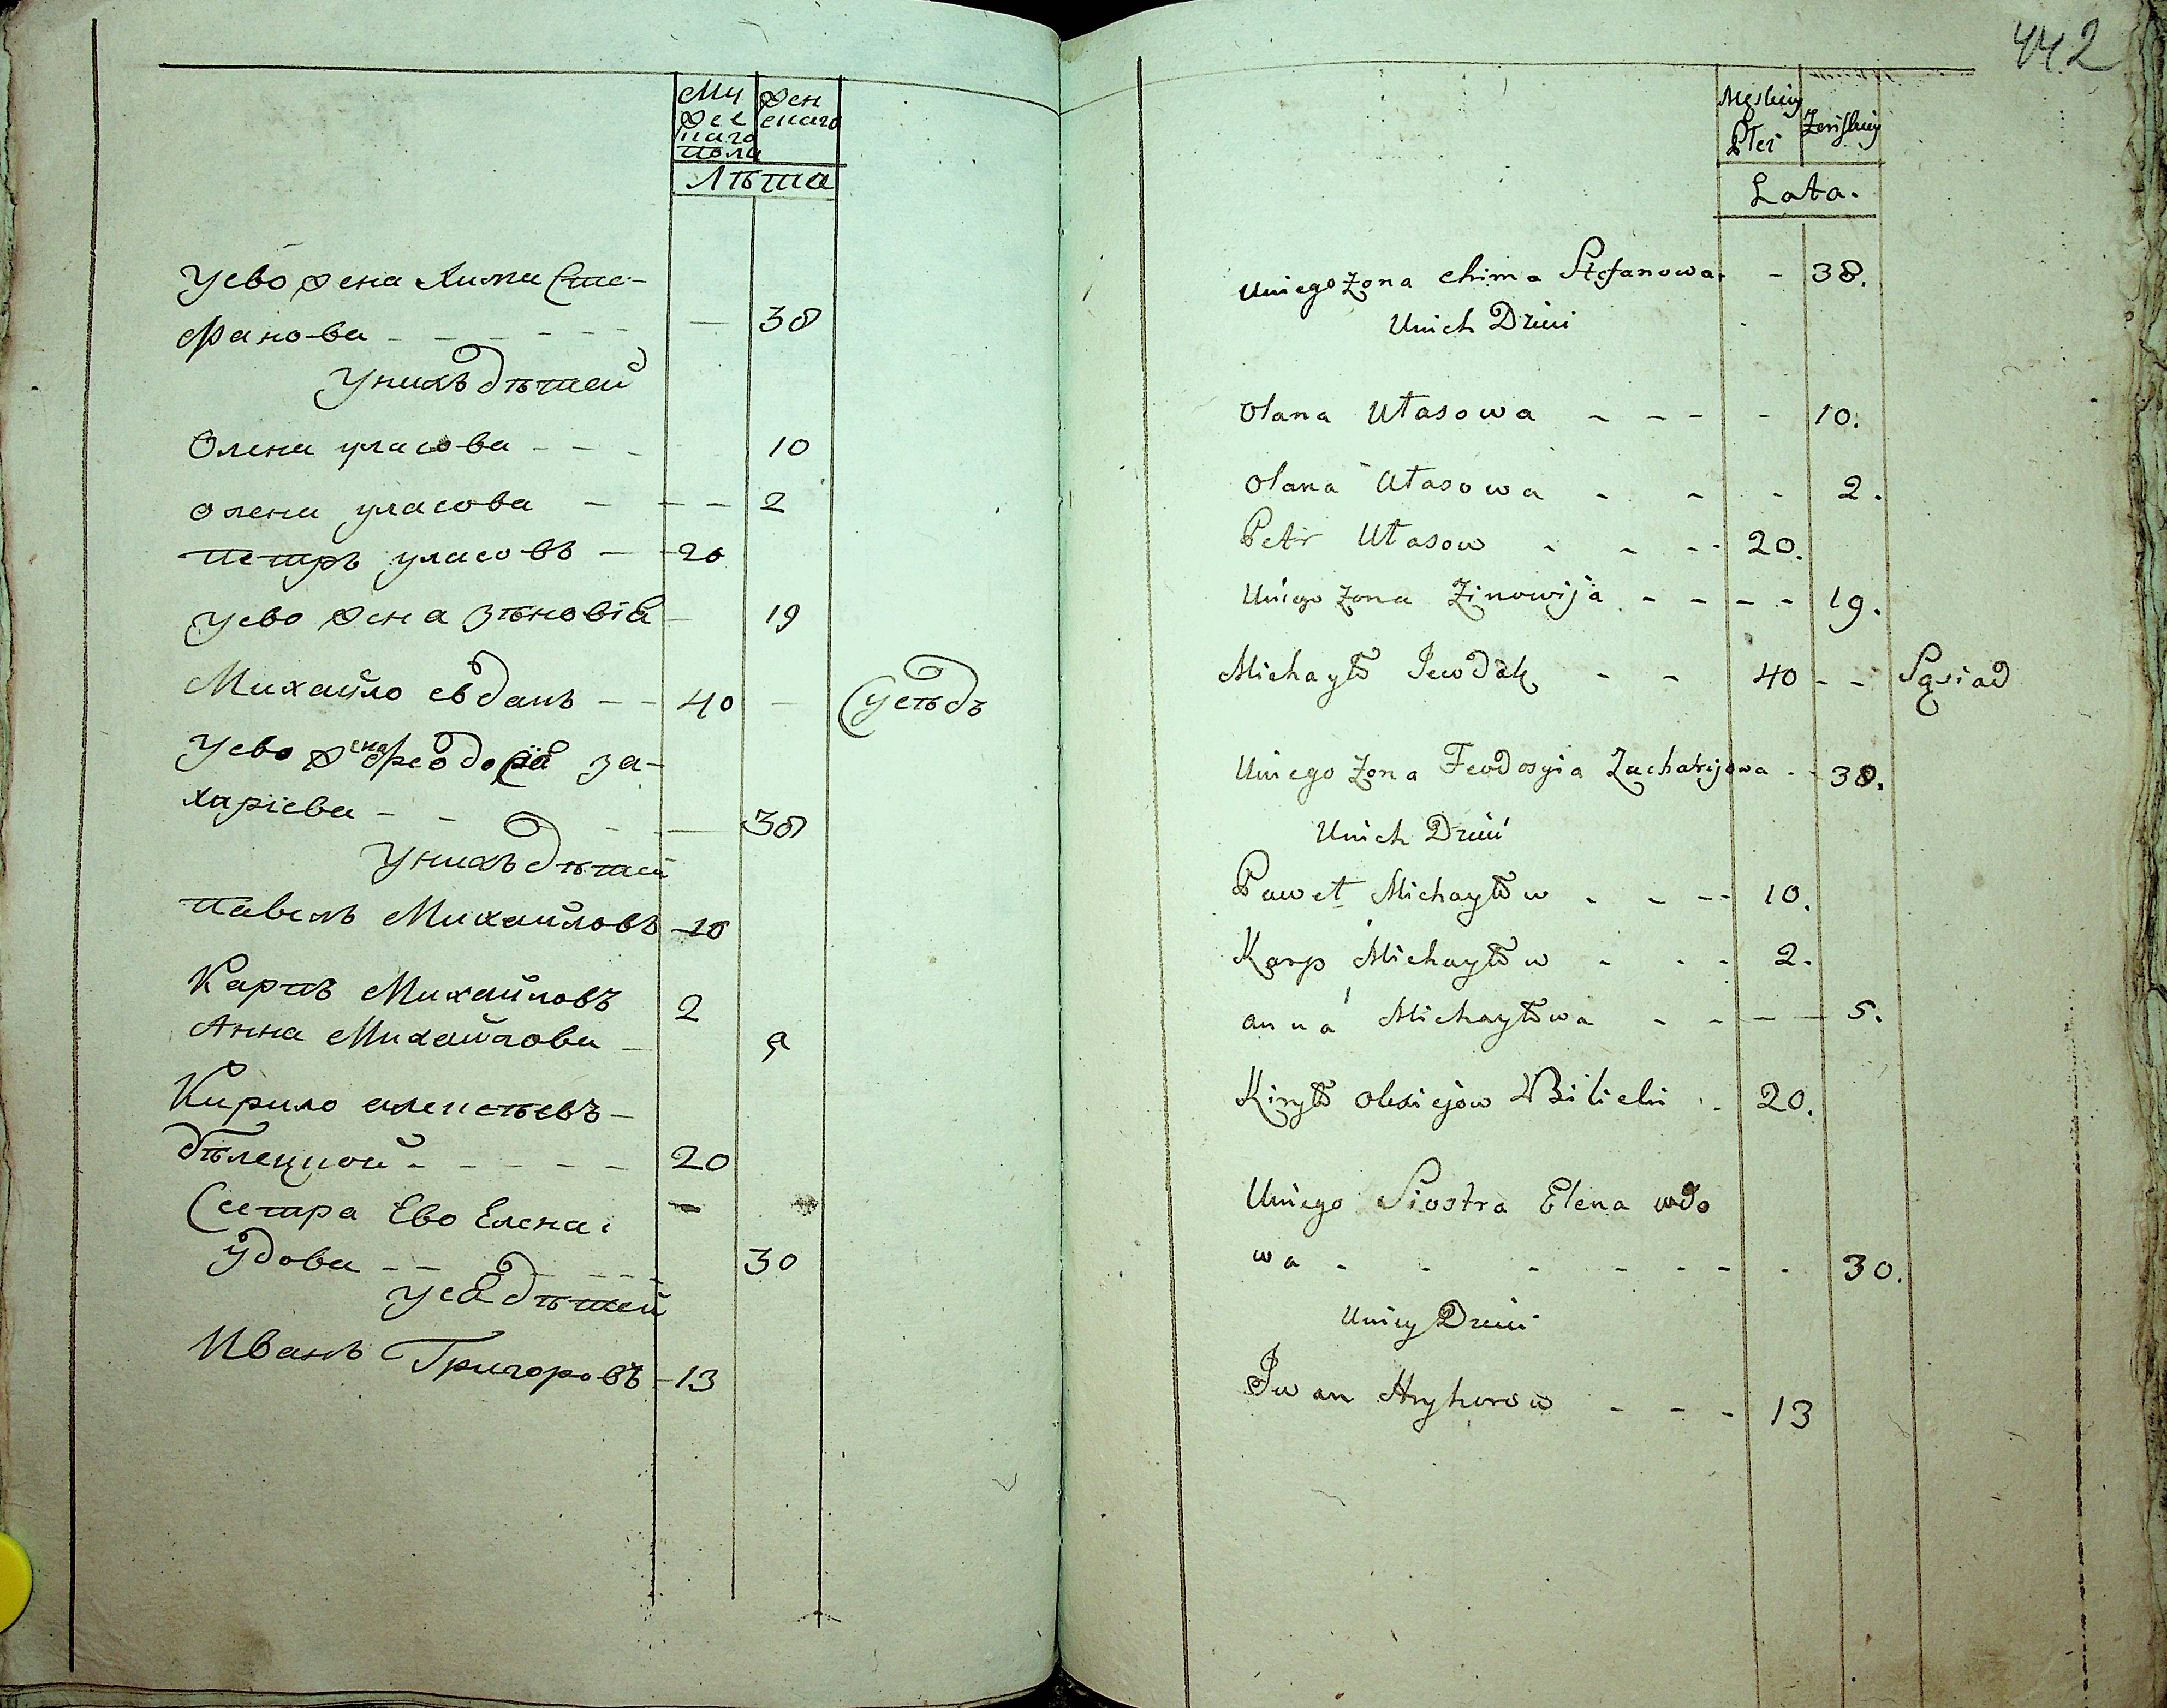 Му
жес
каго
пола
жен
скаго
Лѣта
Уево жена Химa Сте-
фанова - - - - - — 38
Унихъ дѣтей
Олена уласова - - - 10
олена уласова - - - 2
петръ уласовъ - 20
уево жена зѣновіа - 19
Михайло евдакъ - - 40 - Сусѣдъ
Уево жена феодосіа за-
харіева - - - - 38
Унихъ дѣтей
павелъ Михайловъ - 10
Карпъ Михайловъ 2
Анна Михайлова - 5
Кирило алексѣевъ -
бѣлецкой - - - - - 20
Сестра Ево Елена.
удова - - - - - 30
Уеа дѣтей
Иванъ Григоровъ - 13
442
Męskiey
Płci
Żeńskiey
Lata.
Uniego żona Chima Stefanowa. - 38.
Unich Dzieci
Olana Ułasowa - - - - 10.
Olana Ułasowa - - - 2.
Petr Ułasow - - - - 20.
Uniego żona Zinowija - - - - 19.
Michayło Jewdak - - 40 - - Sąsiad
Uniego żona Feodosyia Zacharyjowa - - 38.
Unich Dzieci
Paweł Michayłow - - - - 10.
Karp Michayłow - - - 2.
anna Michayłowa - - - - 5.
Kiryło olexiejow Bilicki - - 20.
Uniego Siostra Elena wdo
wa - - - - - - - 30.
Uniey Dzieci
Iwan Hryhorow - - - 13